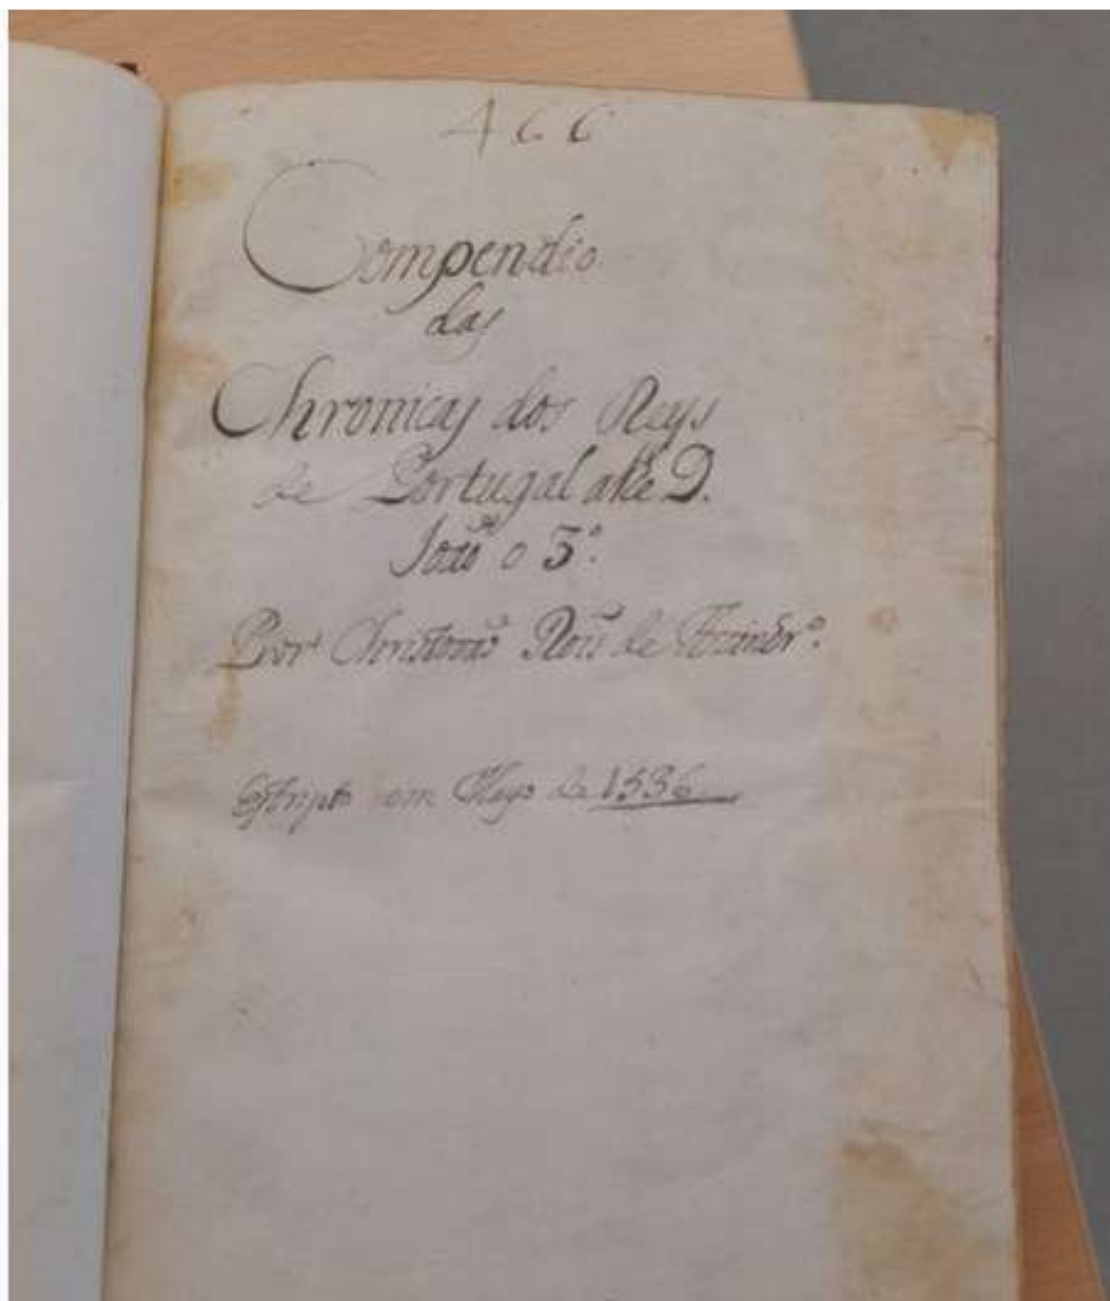 466
Compendio
das
Chronicas dos Reys
de Portugal athe D.
Joaõ o 3º.
Por Christovaõ de
Escripto em Mayo de 1536